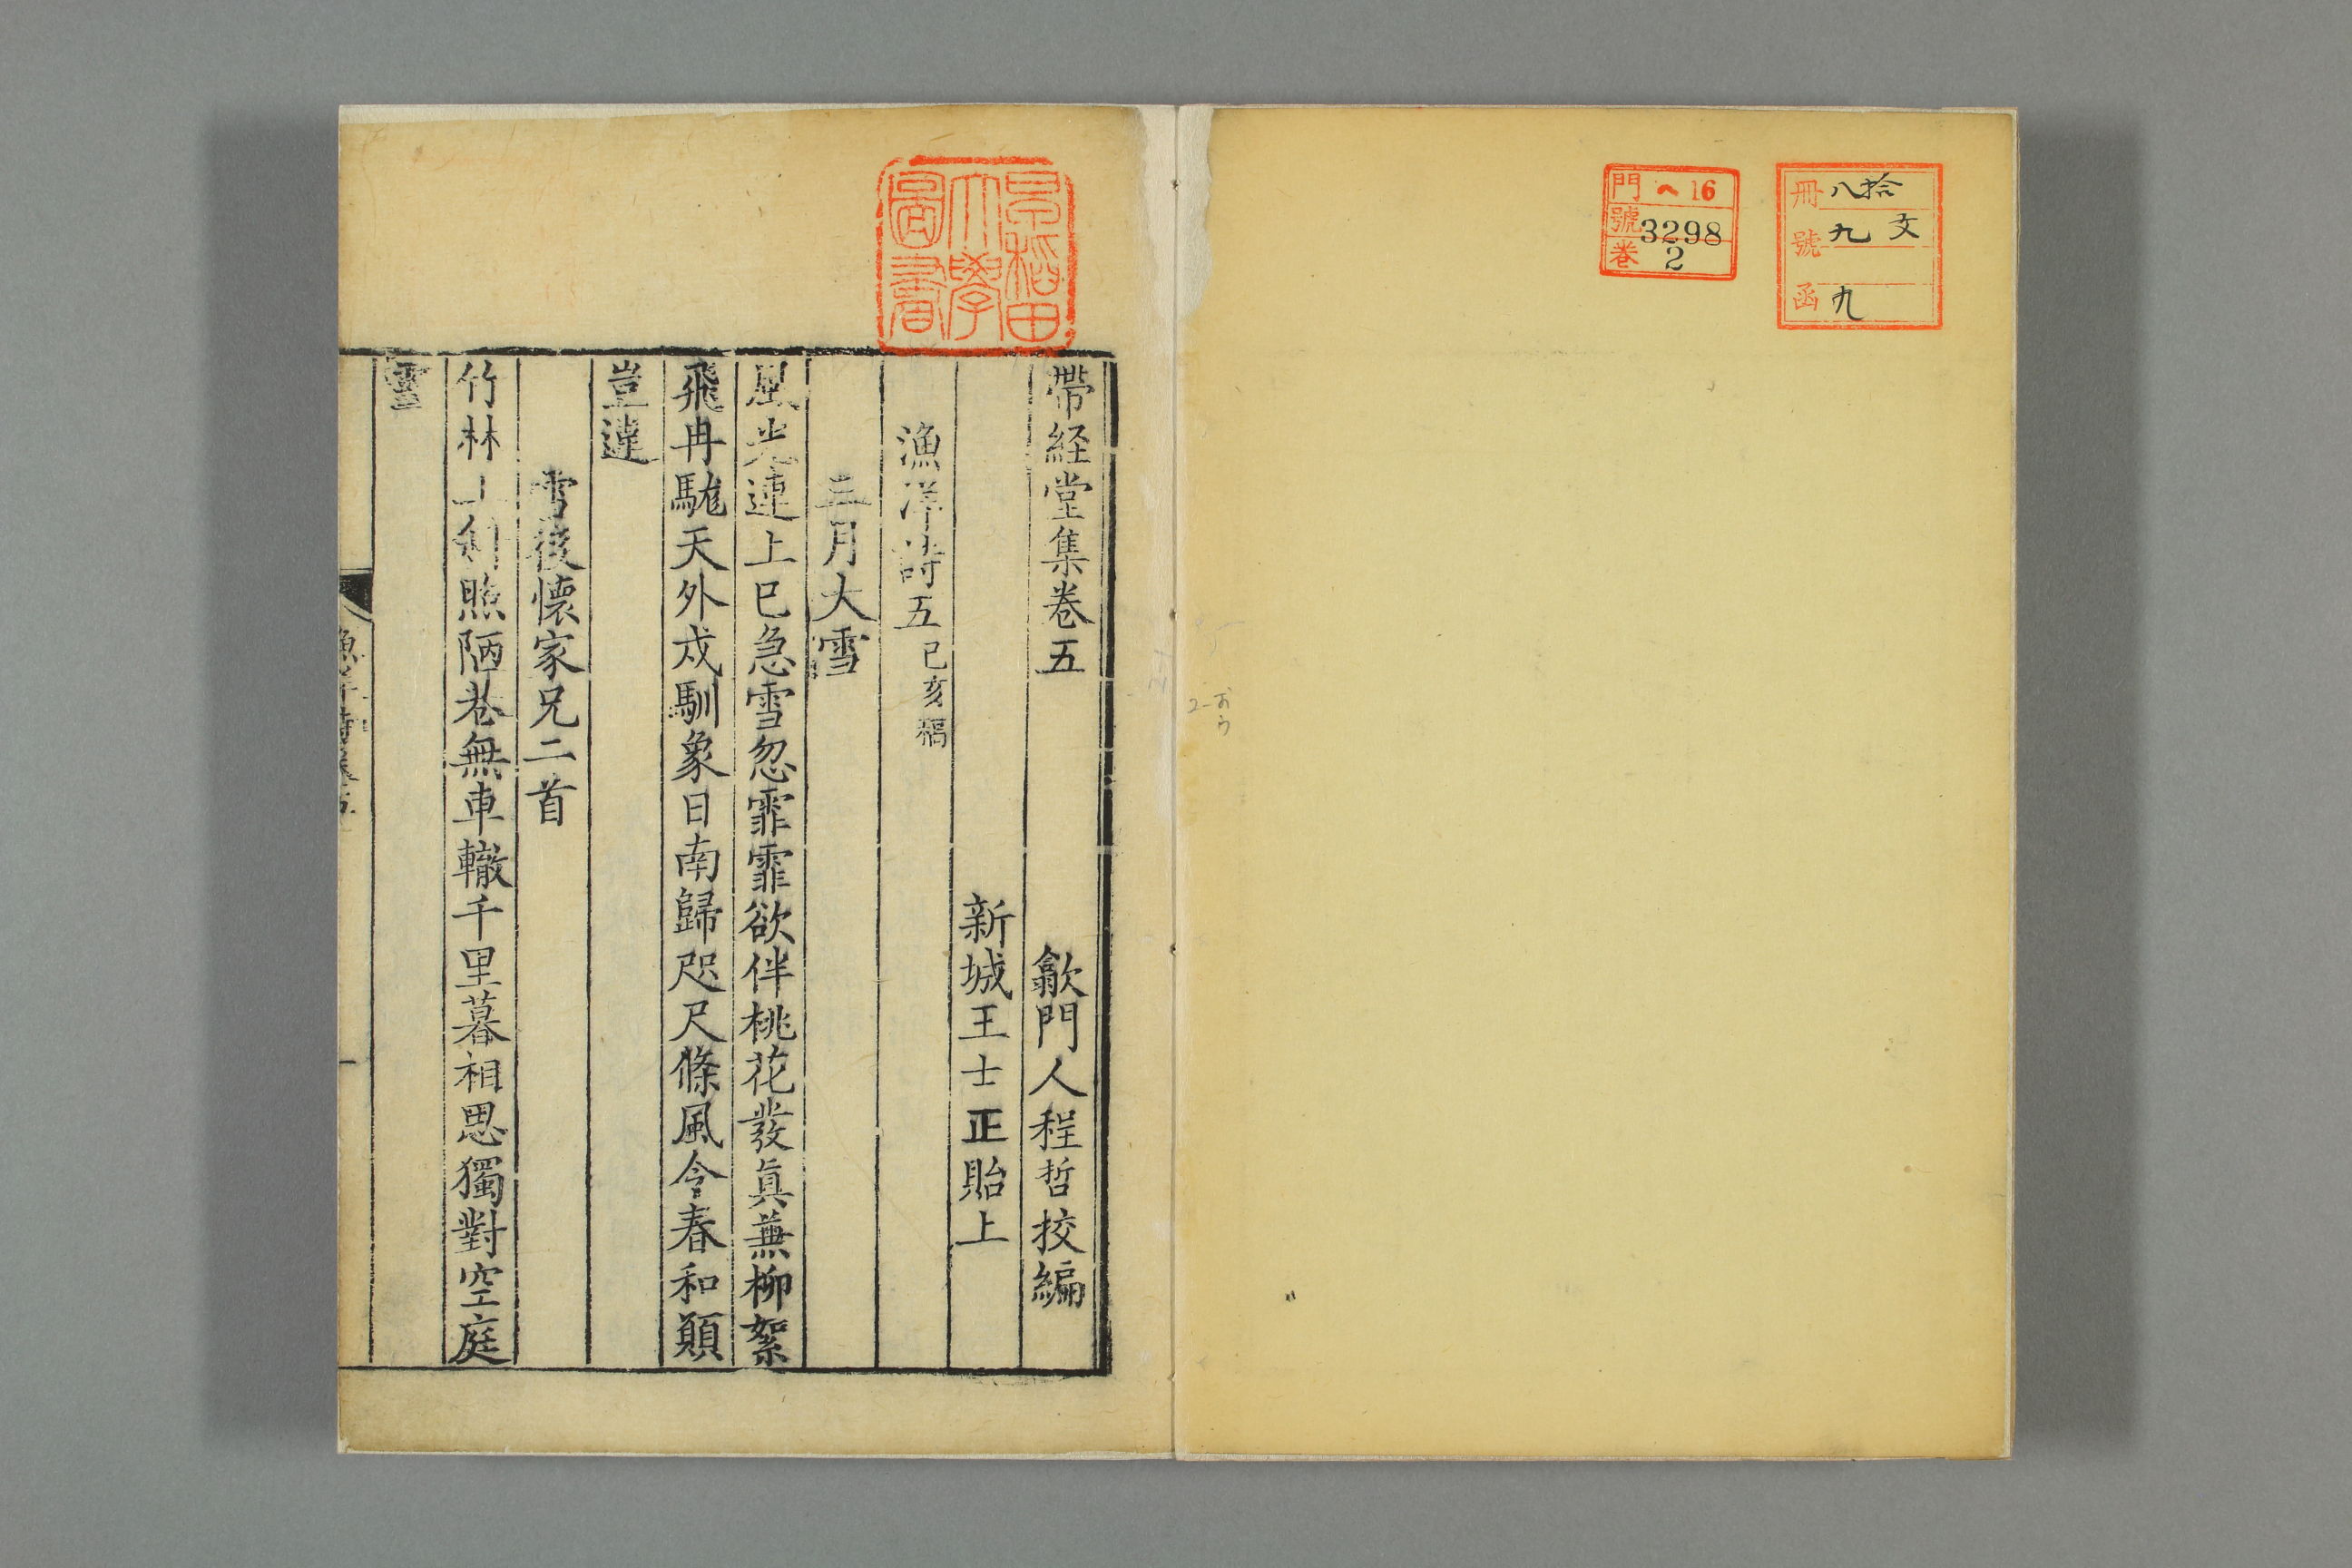 冊 八拾
號 九 文
函 九
門 ヘ16
號 3298
卷 2
早稲田
大學
圖書
帶経堂集卷五 歙門人程哲挍編
新城王士正貽上
漁洋詩五 己亥稿
三月大雪
風光連上巳急雪忽霏霏欲伴桃花發眞兼柳絮
飛冉駹天外戍馴象日南歸咫尺條風令春和願
豈違
雪後懷家兄二首
竹林 照陋巷無車轍千里暮相思獨對空庭
雪
漁洋詩集五
一